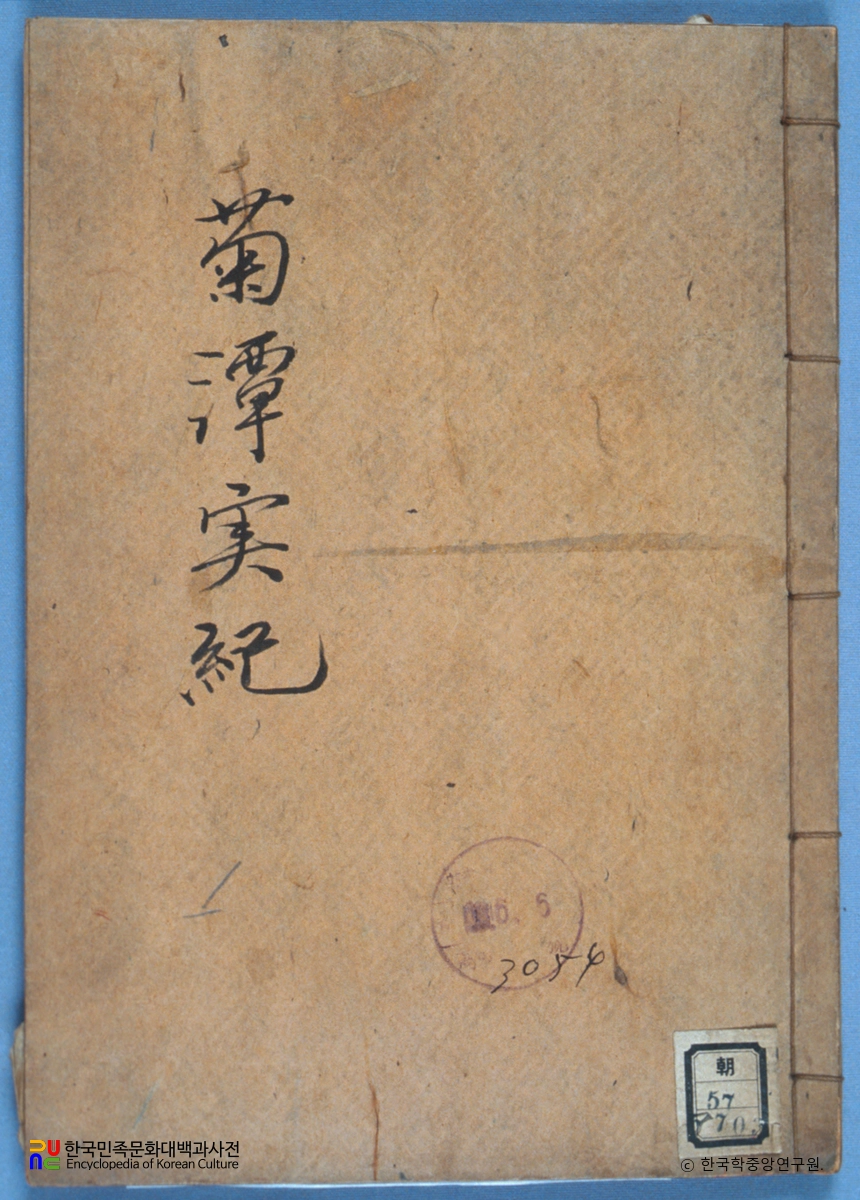 菊潭实紀
6. 6
3084
朝
57
한국민족문화대백과사전
Encyclopedia of Korean Culture
© 한국학중앙연구원